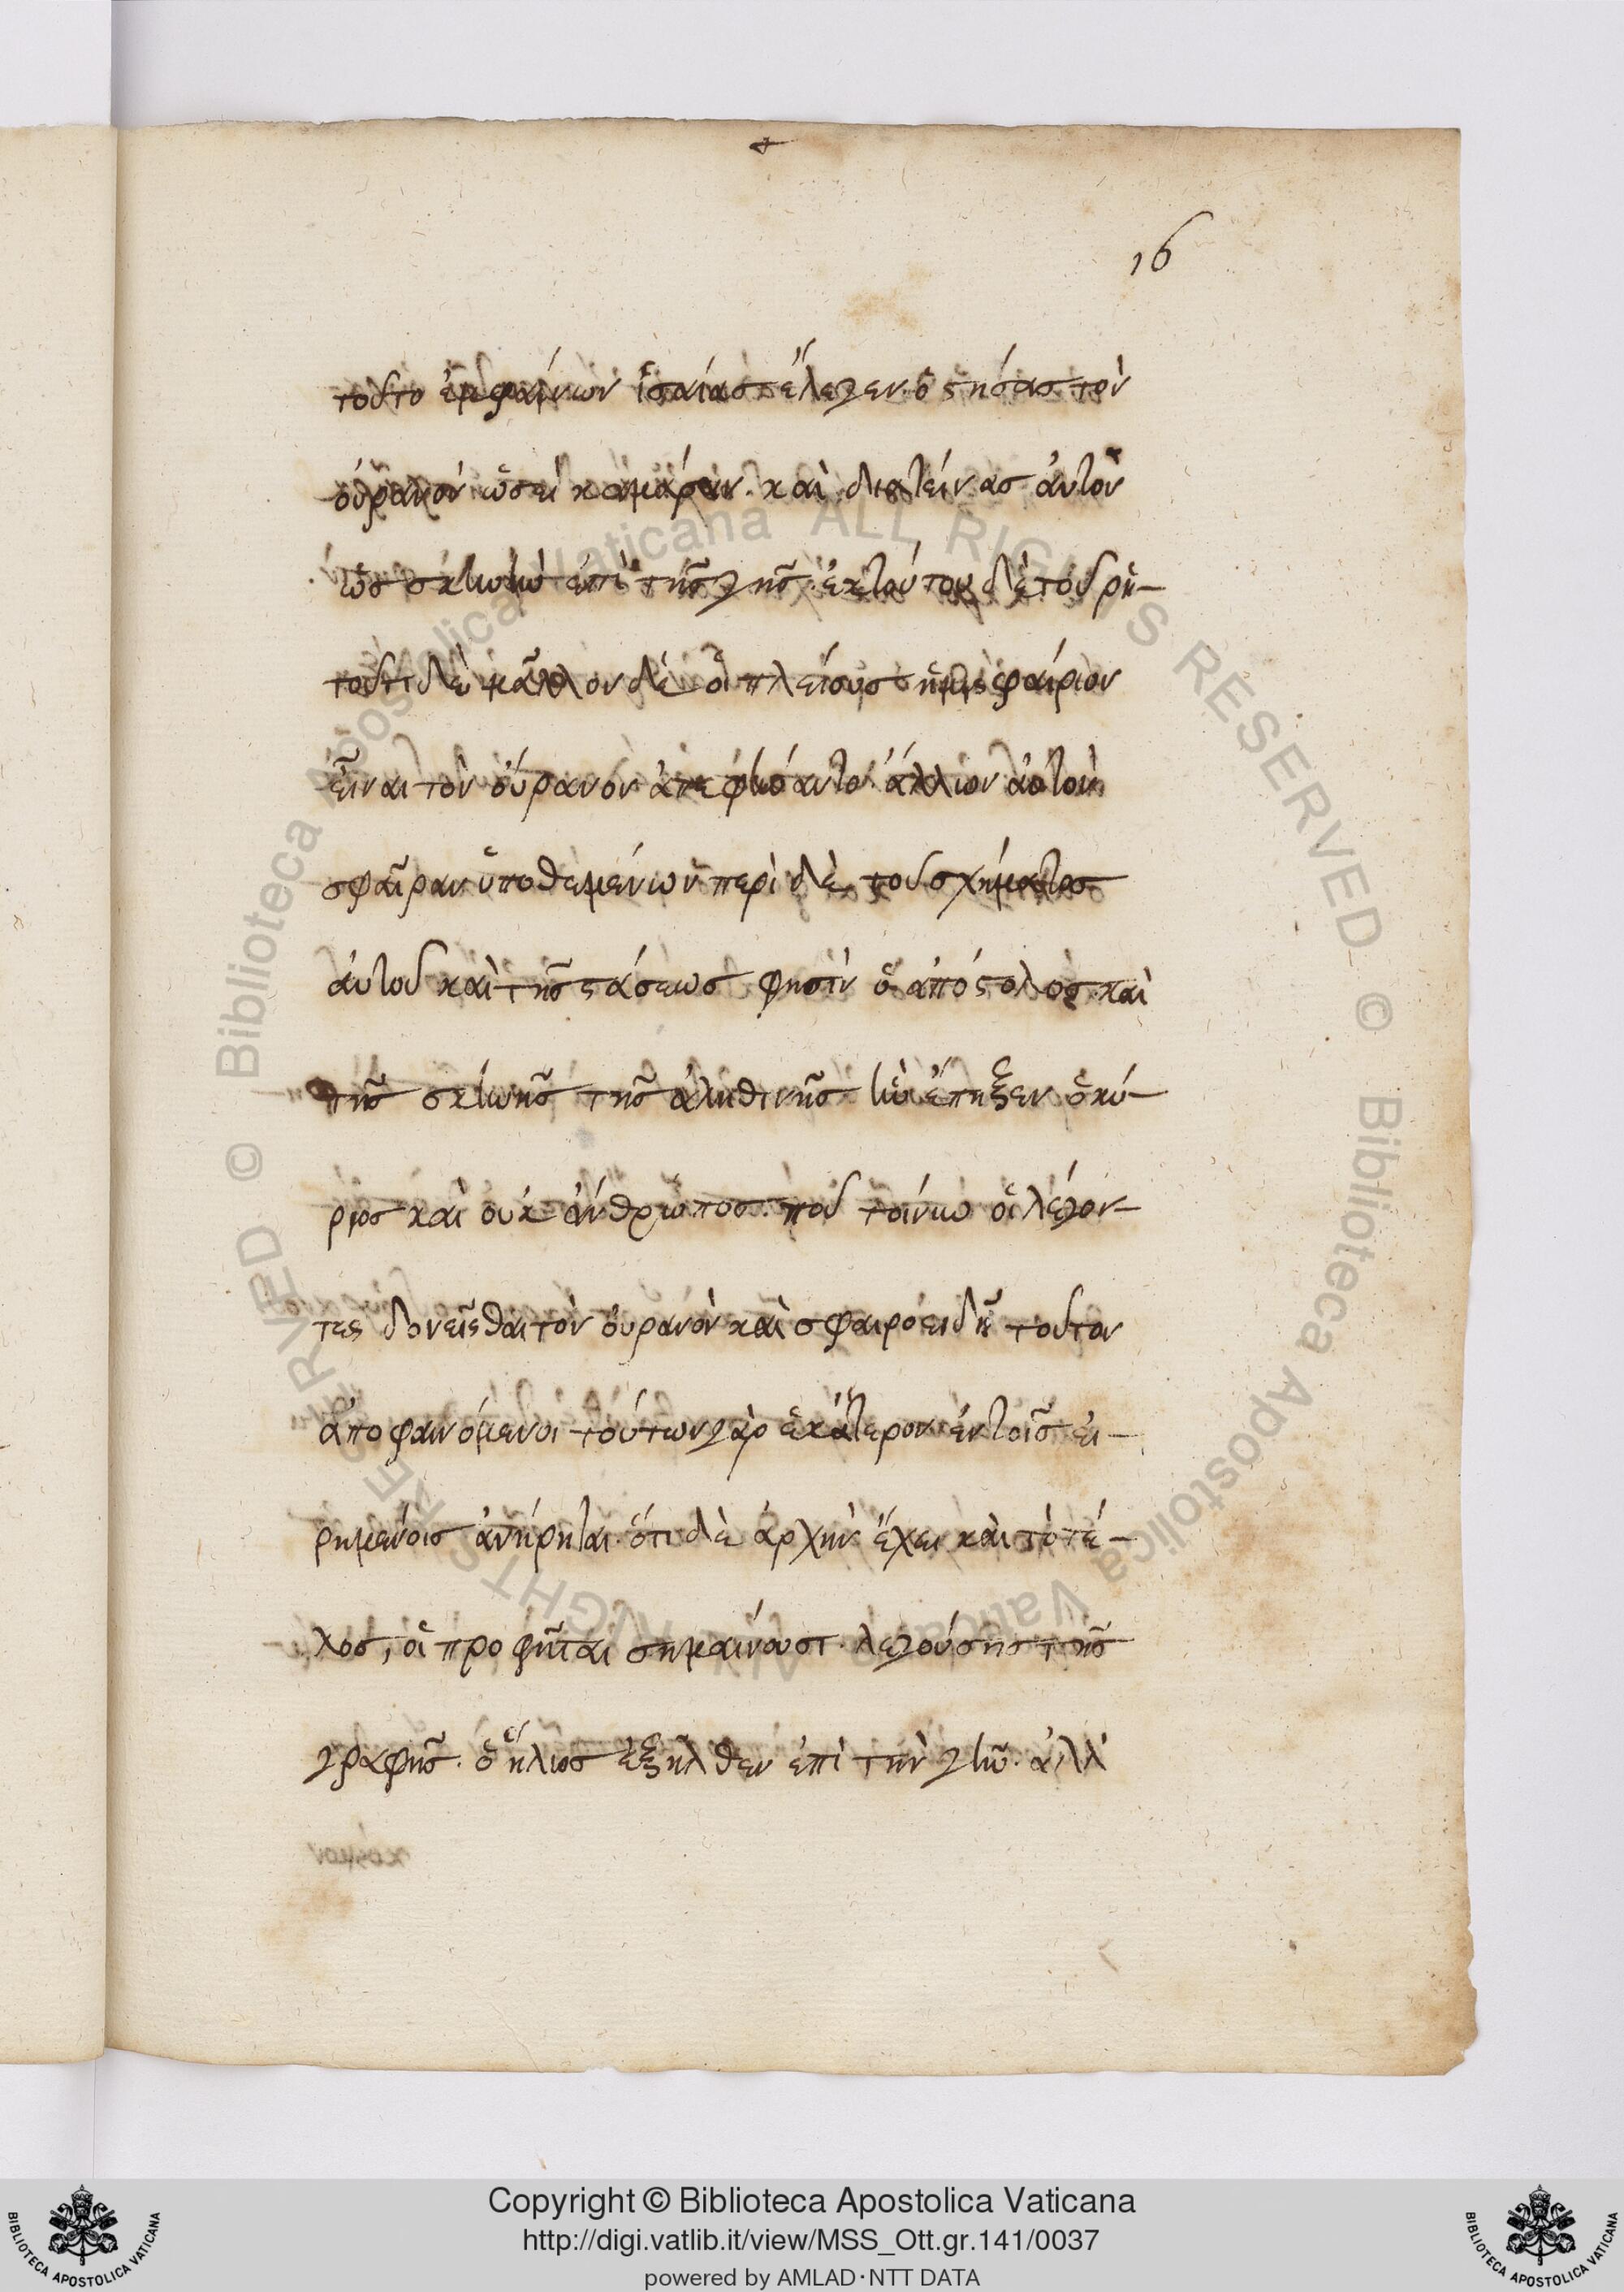 16
τοῦτο ἐμφαίνων ἡσαΐας ἔλεγεν· ὁ στήσας τὸν
οὐρανὸν ὡσεὶ καμάραν. καὶ διατείνας αὐτὸν
ὡς σκηνὴν ἐπὶ τῆς γῆς. ἐκ τούτου δὲ τοῦ ῥη-
τοῦ μᾶλλον δὲ οἱ πλείους ἡμισφαίριον
εἶναι τὸν οὐρανὸν ἀπεφήναντο. ἄλλων αὐτὸν
σφαῖραν ὑποθεμένων περὶ δὲ τοῦ σχήματος
αὐτοῦ καὶ τῆς στάσεως φησὶν ὁ ἀπόστολος. καὶ
τῆς σκηνῆς τῆς ἀληθινῆς ἣν ἔπηξεν ὁ κύ-
ριος καὶ οὐκ ἄνθρωπος. ποῦ τοίνυν οἱ λέγον-
τες δονεῖσθαι τὸν οὐρανὸν καὶ σφαιροειδῆ τοῦτον
ἀποφαινόμενοι τούτων γὰρ ἑκάτερον ἐν τοῖς εἰ-
ρημένοις ἀνῄρηται. ὅτι δὲ ἀρχὴν ἔχει καὶ τὸ τέ-
λος, οἱ προφῆται σημαίνουσι. λεγούσης τῆς
γραφῆς. ὁ ἥλιος ἐξῆλθεν ἐπὶ τὴν γῆν. ἀλλ'
© Biblioteca Apostolica Vaticana ALL RIGHTS RESERVED
© Biblioteca Apostolica Vaticana ALL RIGHTS RESERVED
Copyright © Biblioteca Apostolica Vaticana
http://digi.vatlib.it/view/MSS_Ott.gr.141/0037
powered by AMLAD·NTT DATA
BIBLIOTECA APOSTOLICA VATICANA
BIBLIOTECA APOSTOLICA VATICANA